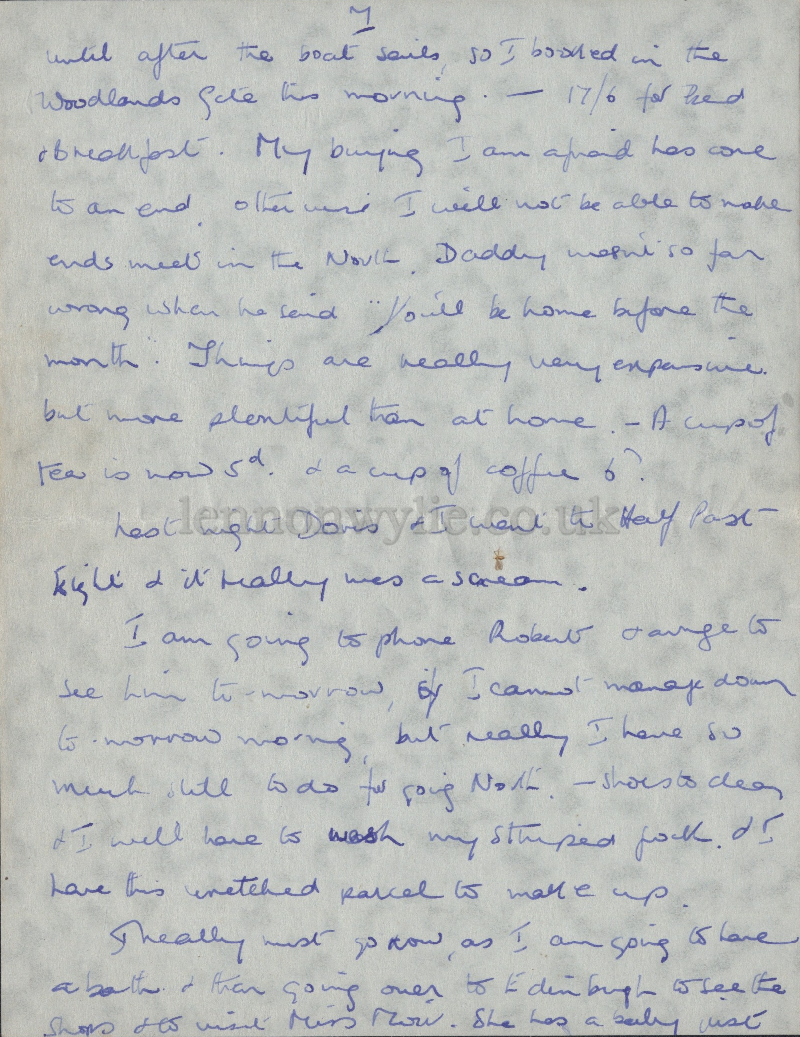 7
until after the boat sails, so I booked in the
Woodlands Gate this morning. — 17/6 for Bed
& breakfast. My buying I am afraid has come
to an end, otherwise I will not be able to make
ends meet in the North. Daddy wasn't so far
wrong when he said "You'll be home before the
month". Things are really very expensive.
but more plentiful than at home. – A cup of
tea is now 5d. & a cup of coffee 6d.
lennonwylie.co.uk
Last night Doris & I went to Half Past
Eight & it really was a scream.
I am going to phone Robert & arrange to
see him to-morrow, if I cannot manage down
to-morrow morning, but really I have so
much still to do for going North. – Shoes to clean
& I will have to wash my striped frock. & I
have this wretched parcel to make up.
I really must go now, as I am going to have
a bath & then going over to Edinburgh to see the
shops & to visit Miss. She has a baby just